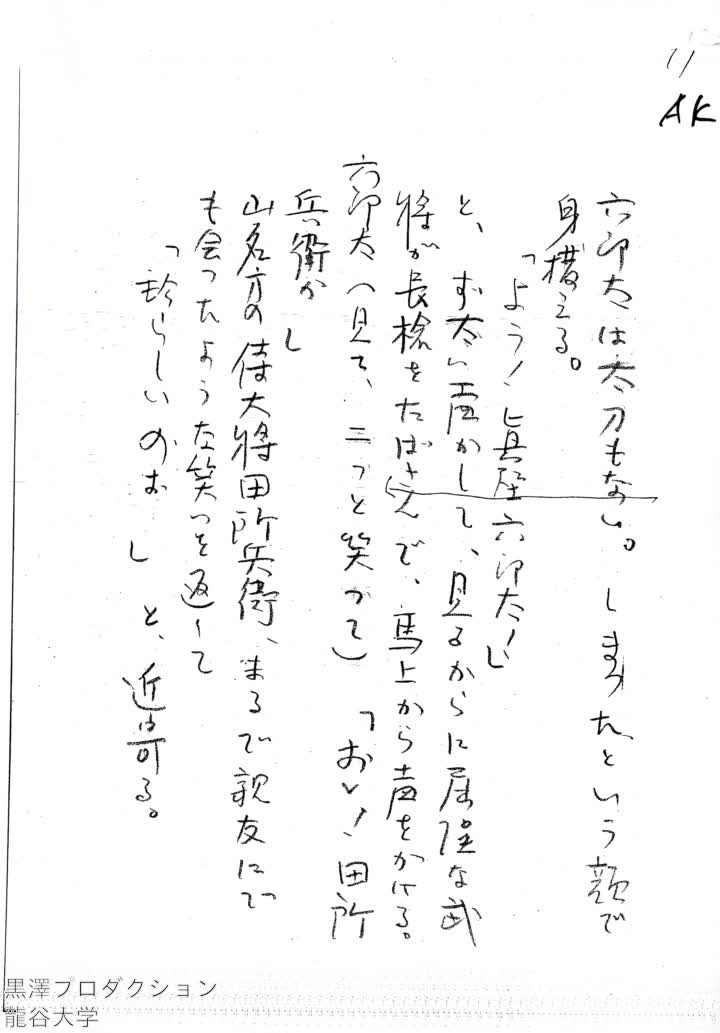 11
AK
六郎太は太刀もない。しまったという顔で
身構える。
「よう！真壁六郎太！」
と、ず太い声がして、見るからに屈強な武
将が長槍をたばさんで、馬上から声をかける。
六郎太（見て、ニヤッと笑って）「おゝ！田所
兵衛か」
山名方の侍大将田所兵衛、まるで親友にで
も会ったような笑いを返して
「珍らしいのお」と、近寄る。
黒澤プロダクション
龍谷大学